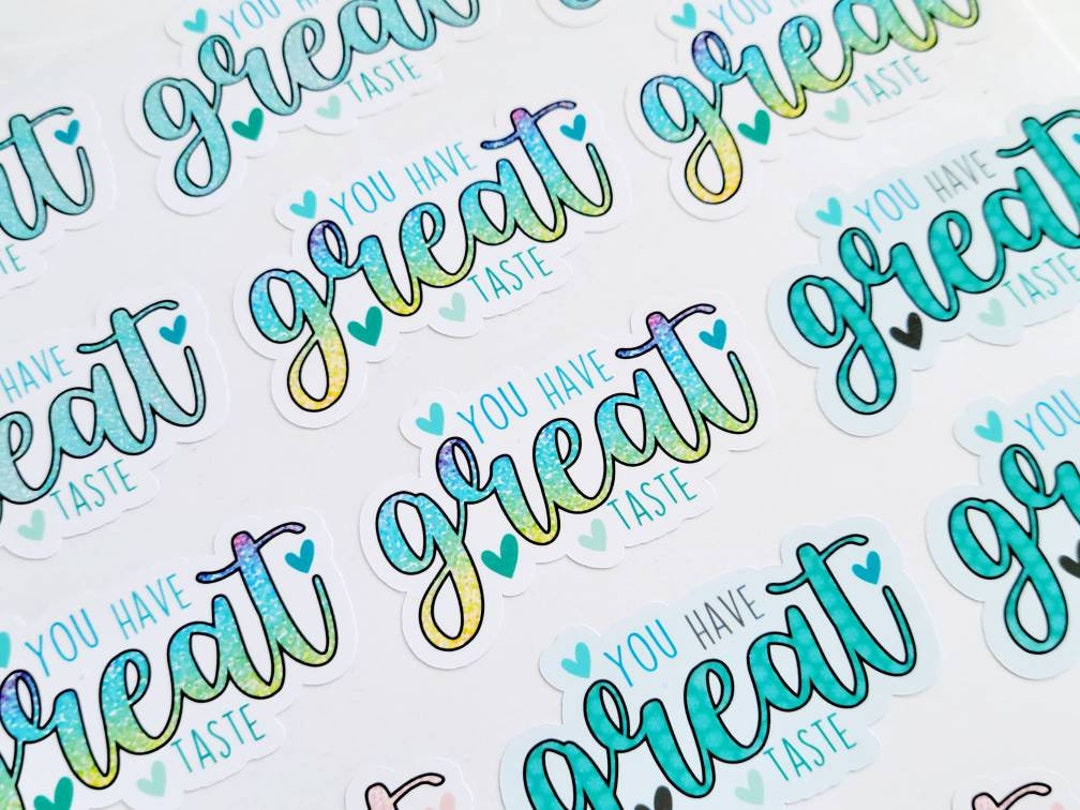 YOU HAVE
great
TASTE
YOU HAVE
great
TASTE
YOU HAVE
great
TASTE
YOU HAVE
great
TASTE
HAVE
great
TASTE
YOU HAVE
great
TASTE
YOU HAVE
great
TASTE
YOU HAVE
great
TASTE
YOU